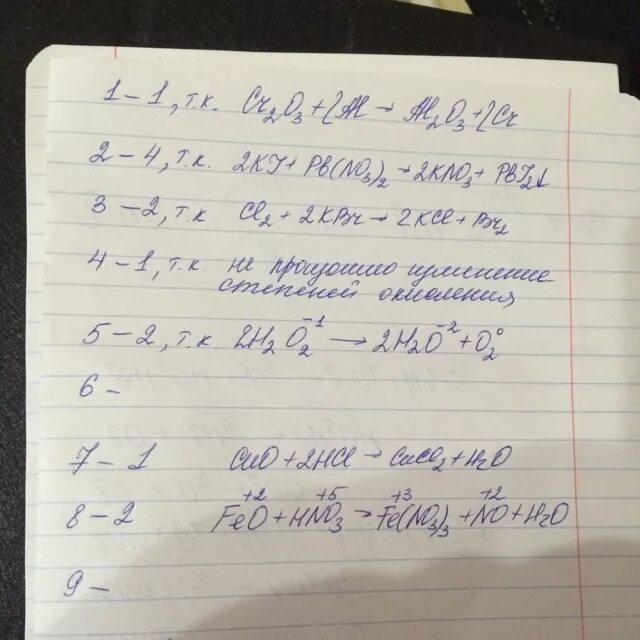 1 – 1, т.к. Cr₂O₃ + 2Al → Al₂O₃ + 2Cr
2 – 4, т.к. 2KJ + Pb(NO₃)₂ → 2KNO₃ + PbJ₂↓
3 – 2, т.к Cl₂ + 2KBr → 2KCl + Br₂
4 – 1, т.к. не произошло изменение
степеней окисления
5 – 2, т.к. 2H₂O₂⁻¹ → 2H₂O⁻² + O₂⁰
6 –
7 – 1 CuO + 2HCl → CuCl₂ + H₂O
+2 +5 +3 +2
8 – 2 FeO + HNO₃ → Fe(NO₃)₃ + NO + H₂O
9 –